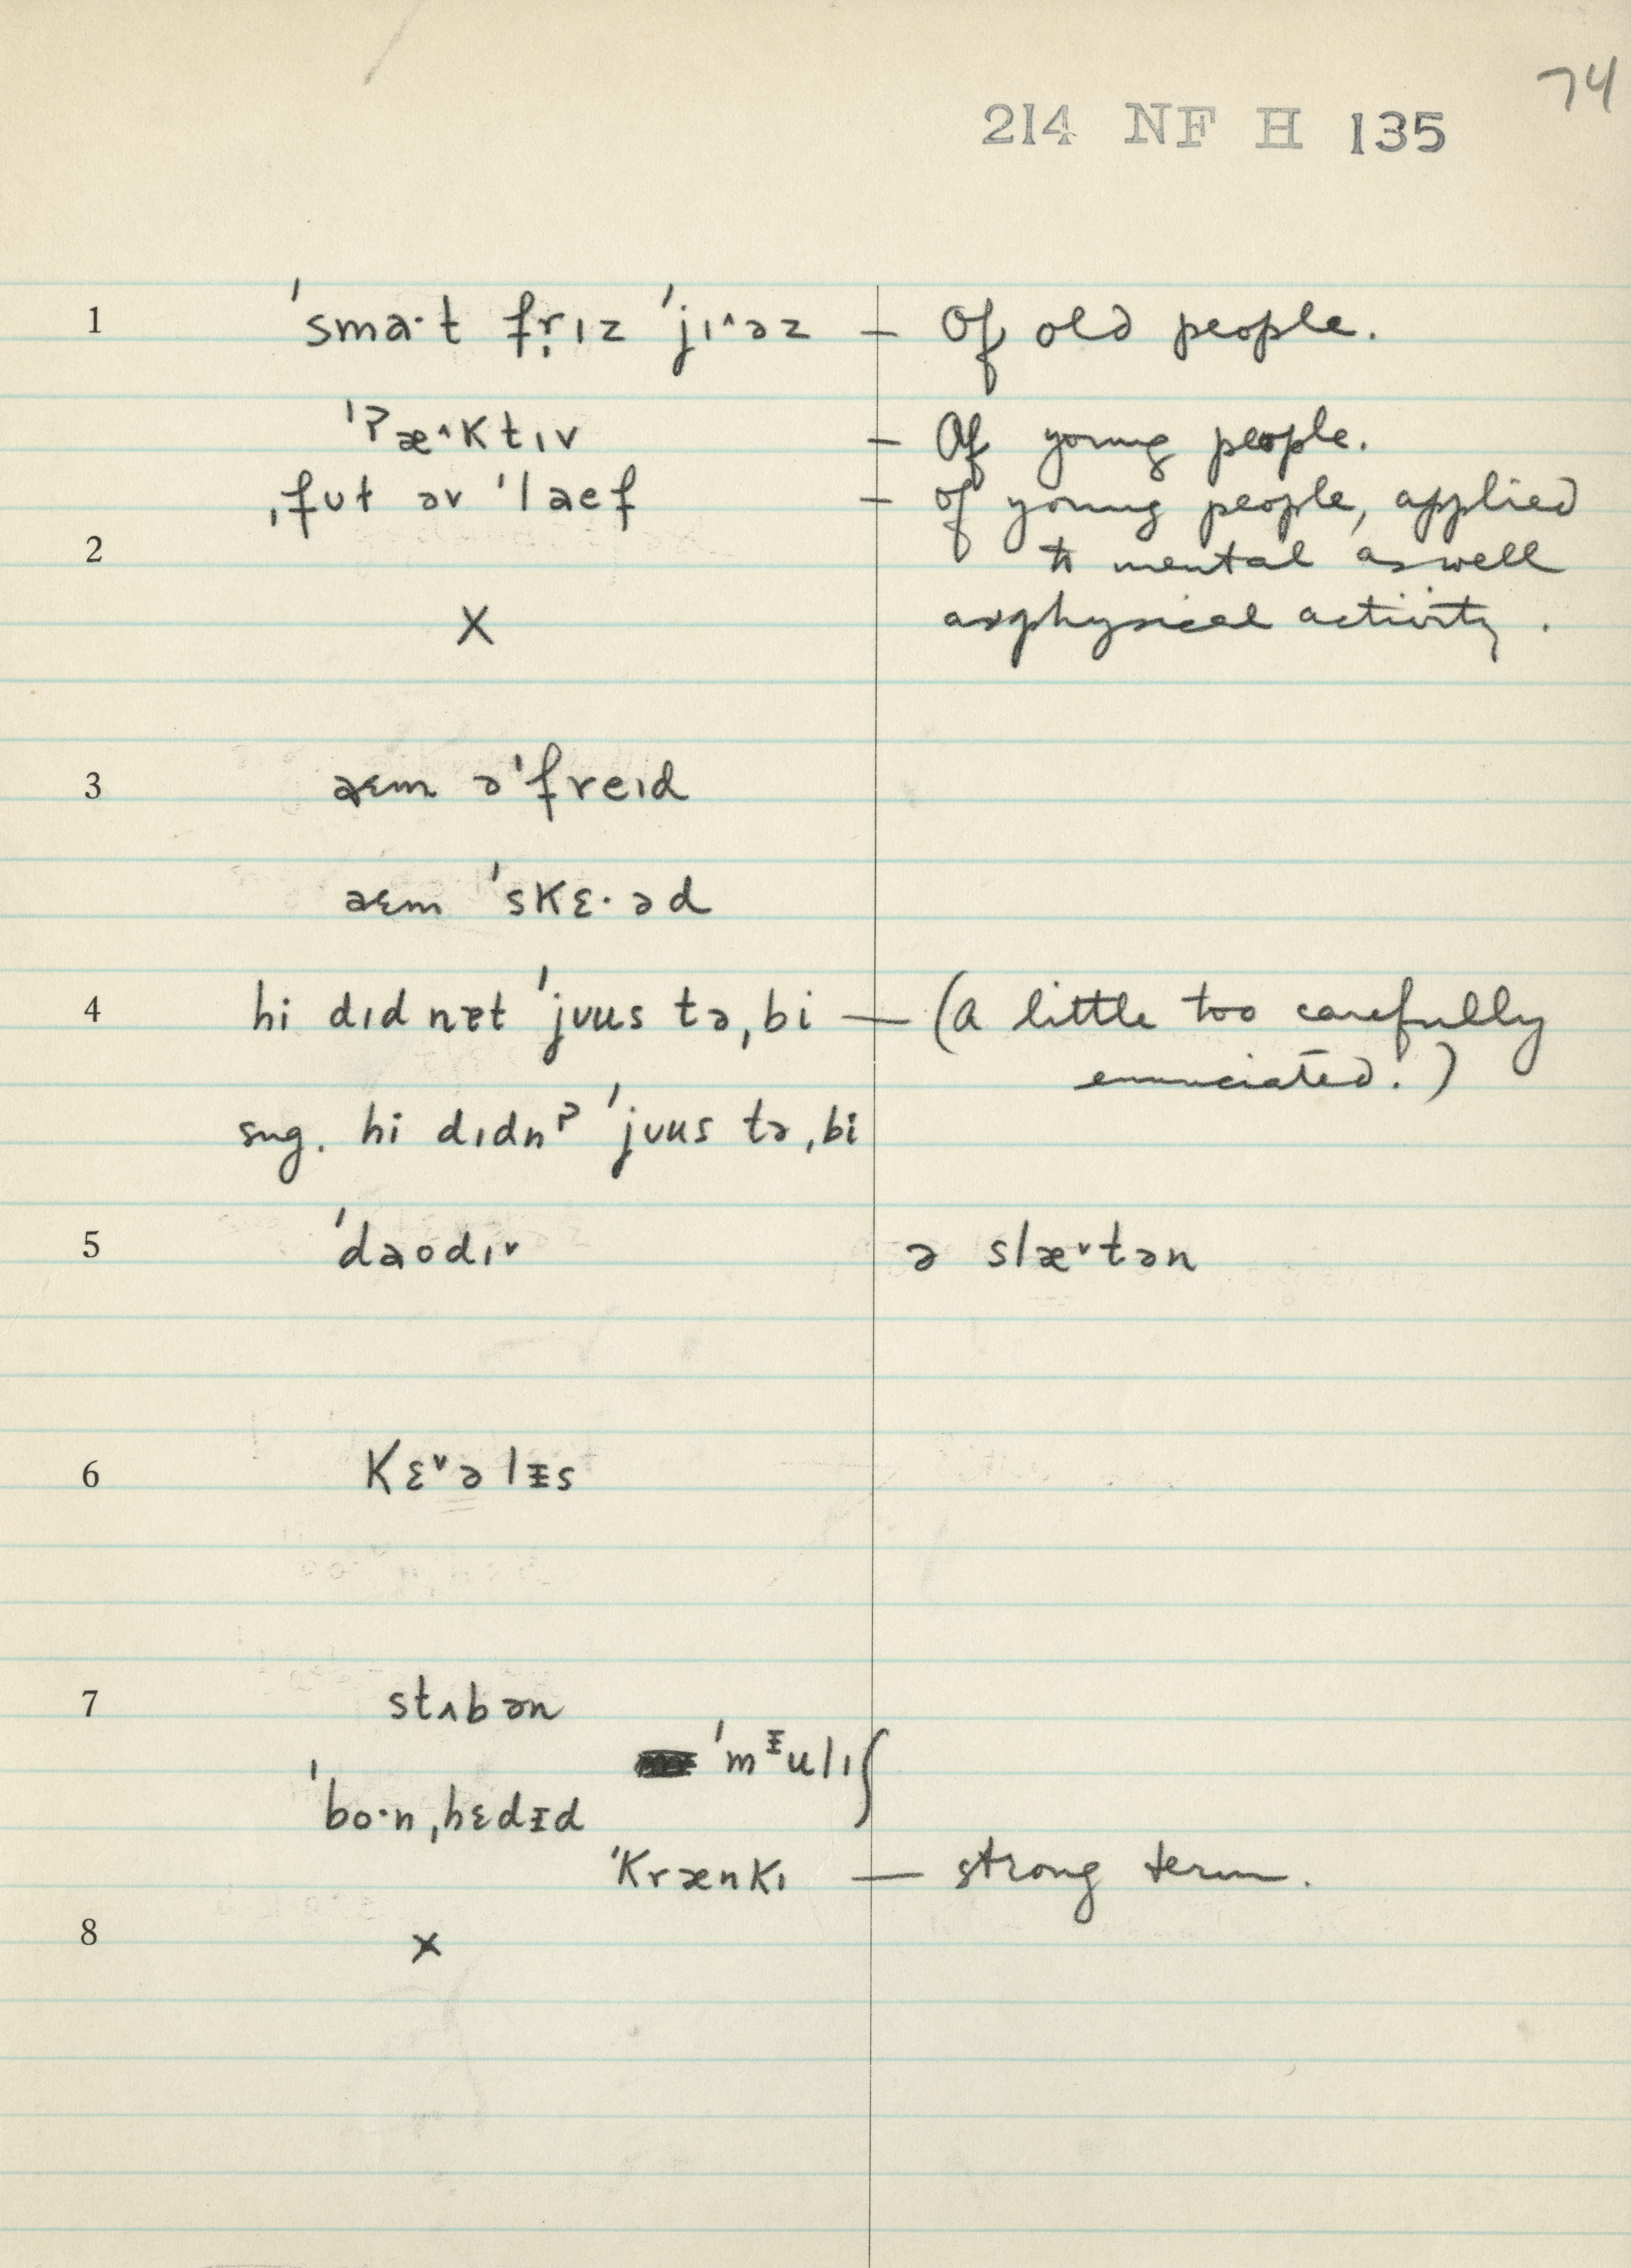 74
214 NF H 135
1 ˈsmaˑt fr̩ɪz ˈjɪ˄əz — Of old people.
ˈʔæ˄ktɪv — Of young people.
ˌfʊɫ əv ˈlaef — of young people, applied
2 to mental as well
X as physical activity.
3 aɛm əˈfreɪd
aɛm ˈskɛ·əd
4 hi dɪd nɐt ˈjʊus təˌbi — (a little too carefully
enunciated.)
sug. hi dɪdnʔ ˈjʊus təˌbi
5 ˈdaodɪ˅ ə slæ˅tən
6 kɛ˅əlᵻs
7 stʌbən
ˈmᵻulɪʃ
ˈbo·nˌhɛdᵻd
ˈkrænkɪ — strong term.
8 X